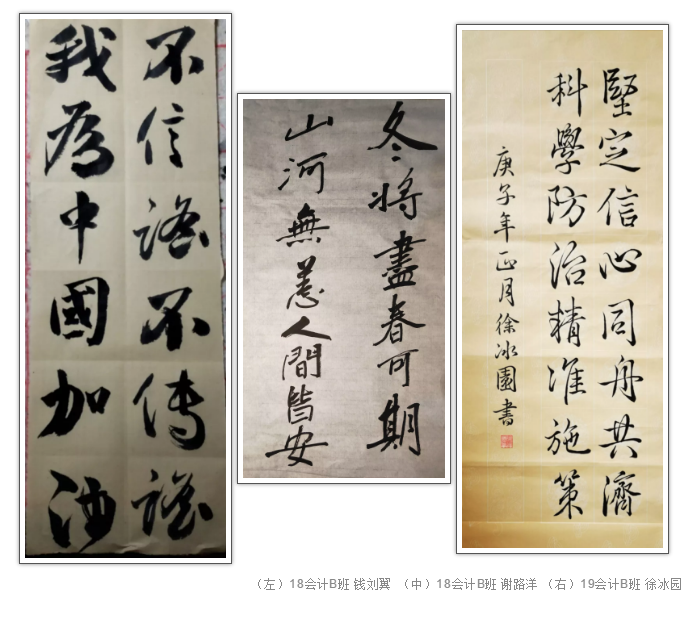 不信謠不傳謠
我為中國加油
冬將盡春可期
山河無恙人間皆安
堅定信心同舟共濟
科學防治精准施策
庚子年正月徐冰園書
（左）18会计B班 钱刘翼 （中）18会计B班 谢路洋 （右）19会计B班 徐冰园